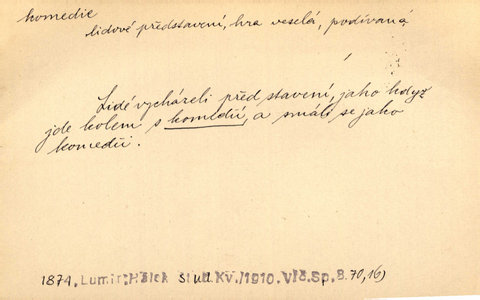 komedie
lidové představení, hra veselá, podívaná
Lidé vycházeli před stavení, jako když
jde kolem s komedií, a smáli se jako
komedii.
1874. Lumír: Hálek Stud. Kv./1910. Vlč. Sp. 8. 70, 16)